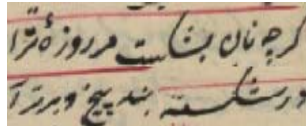 گرچه نان بشکست مر روزهٔ ترا
در شکسته بند پیچ و برتر آ